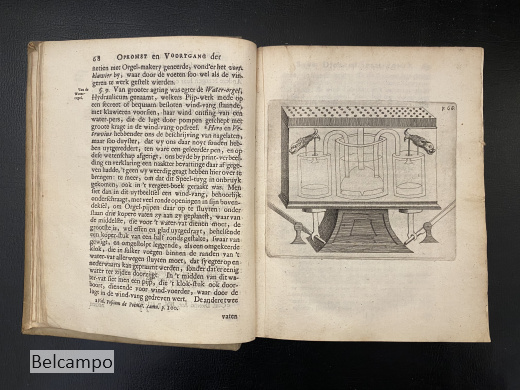 68 OPKOMST en VOORTGANG der
netien met Orgel-makery geneerde, vond'er het voet-
klawier by, waar door de voeten soo wel als de vin-
geren te werk gestelt wierden.
Van de Water-orgel.
§. 9. Van grooter agting was egter de Water-orgel,
Hydraulicum genaamt, welkers Pijp-werk mede op
een secreet of bequaam besloten wind-vang staande,
met klawieren voorsien, haar wind ontfing van een
water-pers, die de lugt door pompen geschept met
groote kragt in de wind-vang opdreef. Hero en Ve-
truvius hebbender ons de beschryving van nagelaten,
maar soo duyster, dat wy ons daar noyt souden heb-
ben uytgereddet, ten ware een geleerder pen, en op
dese wetenschap afgerigt, ons beyde by print-verbeel-
ding en verklaring een naakter bevattinge daar af gege-
ven hadde, 't geen wy weerdig geagt hebben hier over te
brengen: te meer, om dat dit Speel-tuyg in onbruyk
gekomen, ook in 't vergeet-boek geraakt was. Men
siet dan in dit uytbeeltsel een wind-vang, behoorlijk
onderschraagt, met veel ronde openingen in sijn boven-
deksel, om Orgel-pijpen daar op te sluyten: onder
staan drie kopere vaten zy aan zy geplaatst, waar van
de middelste, die voor 't water-vat dienen moet, de
grootste is, wel effen en glad uytgedraayt, behelsende
een koper-stuk van een half rondsgestalte, swaar van
gewigt, en omgestolpt leggende, als een omgekeerde
klok, die in sulker voegen binnen de randen van 't
water-vat allerwegen sluyten moet, dat sy egter op en
nederwaarts kan gepraamt werden, sonder dat'er eenig
water ter zijden doorzijgt. In 't midden van dit wa-
ter-vat siet men een pijp, die 't klok-stuk ook door-
boort, dienende voor wind-voerder, waar door de
lugt in de wind-vang gedreven wert. De andere twee
vaten
p. 68.
Belcampo